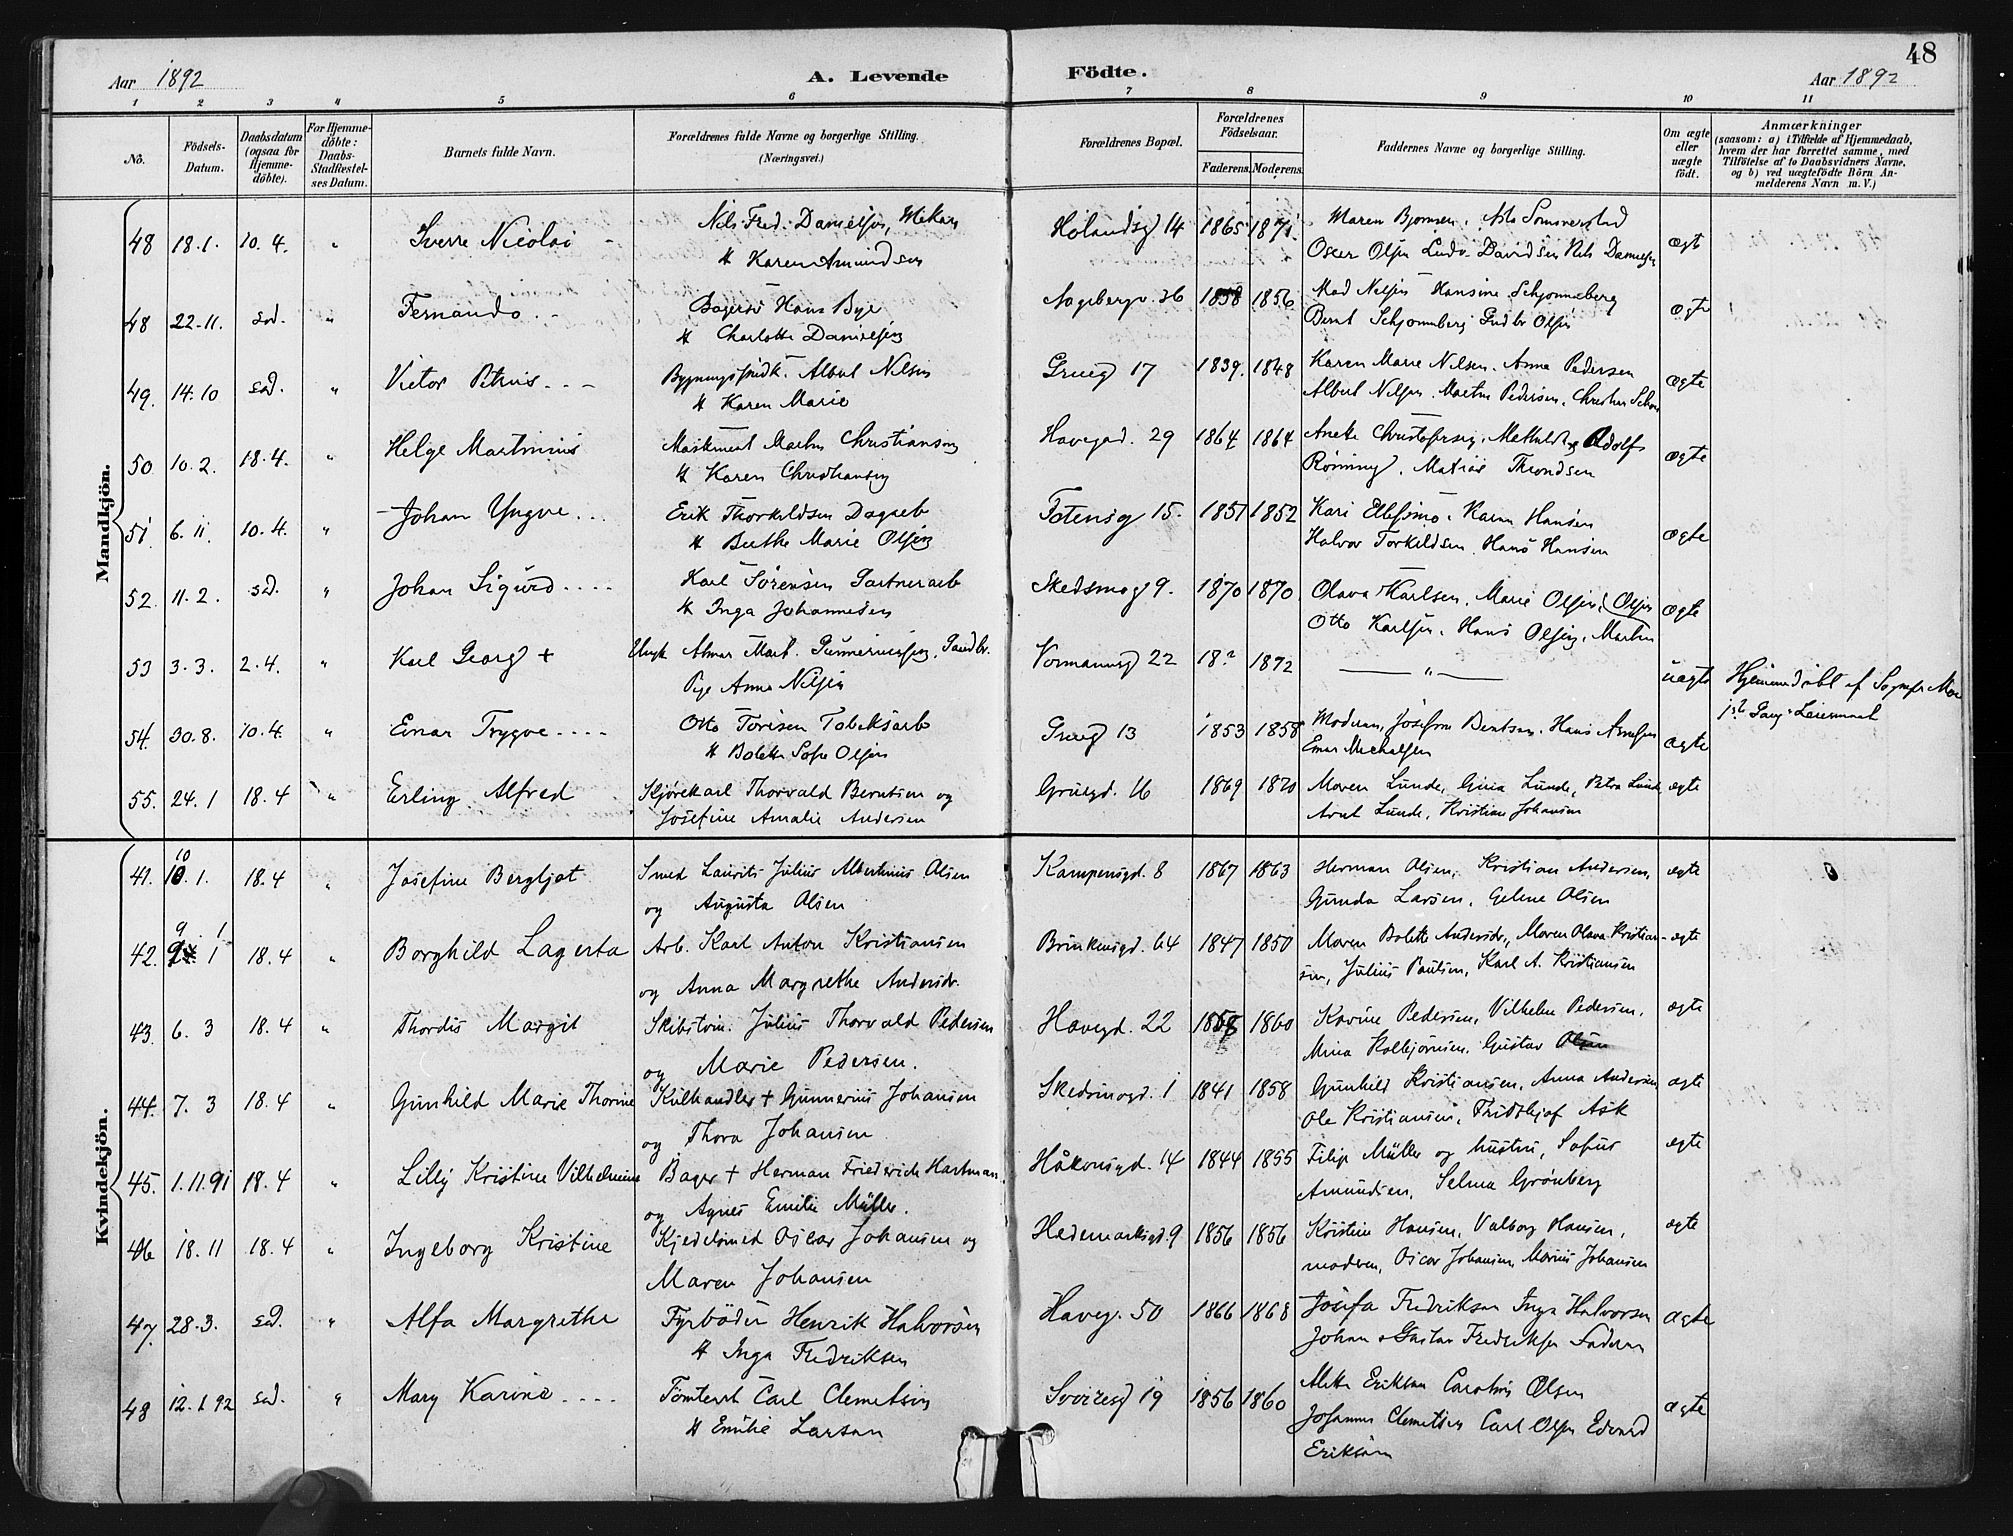 48
Aar 1892
A. Levende
Födte.
Aar 1892
1 2 3 4 5 6 7 8 9 10 11
No.
Födsels-
Datum.
Daabsdatum
(ogsaa for
Hjemme-
döbte).
For Hjemme-
döbte:
Daabs-
Stadfæstel-
ses Datum.
Barnets fulde Navn.
Forældrenes fulde Navne og borgerlige Stilling.
(Næringsvei.)
Forældrenes Bopæl.
Forældrenes
Födselsaar.
Faderens. Moderens.
Faddernes Navne og borgerlige Stilling.
Om ægte
eller
uægte
födt.
Anmærkninger
(saasom: a) i Tilfælde af Hjemmedaab,
hvem der har forrettet samme, med
Tilföielse af to Daabsvidners Navne,
og b) ved uægtefödte Börn An-
melderens Navn m. V.)
Mandkjön.
48 18.1. 10.4. " Sverre Nicolai - Nils Fred. Danielsen, Mekan Holandsg 14 1865 1871. Maren Bjornsen,
& Karen Amundsen Oscar Olsen Ludv. Davidsen Nils Danielsen ægt
48 22-11. sad. " Fernando. - Hans Bye Aagebergv. 36 1858 1856 Nelsen Hansine Schjonneberg
& Charlotte Danielsen Bernt Schjonneberg Olsen ægte
49. 14.10 sad. " Victor Petrus - - - Albert Nilsen Grueg 17 1839. 1848 Karen Marie Nilsen. Anna Pedersen
& Karen Marie Albert Nilsen. Martin Pedersen. ægte
50 10.2. 18.4. " Helge Martinius Martin Christiansen Havegad. 29 1864 1864 Adolf
& Karen Christiansen Rönning. Matias Throndsen ægte
51. 6.11. 10.4. " Johan Yngve... Erik Thorkildsen Dagarb Totensg 15. 1851 1852 Kari Karen Hansen
& Berthe Marie Olsen Halvor Torkildsen. Hans Hansen ægte
52. 11.2. sad. " Johan Sigurd.... Karl Sörensen Gartnerarb Skedsmog 9. 1870 1870 Olava Karlsen. Marie Olsen, Olsen
& Inga Johannesen Otto Karlsen. Hans Olsen. Martin ægte
53 3.3. 2.4. " Karl Georg + Ungk Mart. Gunneriussen, Vormannsg 22 18? 1872 — " — uægte Hjemmedöbt af
Pige Anna Nilsen 1st Leiermaal
54. 30.8. 10.4. " Einar Trygve.... Otto Torisen Tobaksarb Grueg 13 1853 1858 Moderen, Josefine Berntsen. Hans
& Bolette Sofie Olsen Einar Michalsen ægte
55. 24.1 18.4 " Erling Alfred Kjörekarl Thorvald Berntsen og Gruegd. 16 1869 1870 Maren Lunde, Gina Lunde, Petra Lunde, ægte
Josefine Amalie Andersen Arnt Lunde, Kristine Johansen
Kvindekjön.
10
41. 10.1. 18.4 " Josefine Bergljot Smed Laurits Julius Albertinius Olsen Kampensgd. 8 1867 1863 Herman Olsen, Kristian Andersen, ægte
og Augusta Olsen Gunda Larsen, Gelene Olsen
9 1
42. 9. 1 18.4 " Borghild Lagerta Arb. Karl Anton Kristiansen Brinkensgd. 64 1847 1850 Maren Bolette Andersdr., Maren Olava Kristian- ægte
og Anna Margrethe Andersdr. sen, Julius Paulsen, Karl A. Kristiansen
43. 6.3 18.4 " Thordis Margit Skibstöm. Julius Thorvald Pedersen Havegd. 22 1858 1860 Karine Pedersen, Vilhelm Pedersen, ægte
og Marie Pedersen. Mina Kolbjörnsen. Gustav Olsen
44. 7.3 18.4 " Gunhild Marie Thorine Kulhandler + Gunnerius Johansen Skedsmogd. 1 1841 1858 Gunhild Kristiansen, Anna Andersen, ægte
og Thora Johansen Ole Kristiansen, Fridthjof Ask
45. 1.11.91 18.4 " Lilly Kristine Vilhelmine Bager + Herman Friederich Hartman Håkonsgd. 14 1844 1855 Filip Müller og hustru, Sofus ægte
og Agnes Emilie Müller. Amundsen, Selma Grönberg
46 18.11 18.4 " Ingeborg Kristine Kjedelsmed Oscar Johansen og Hedemarksgd. 9 1856 1856 Kristine Hansen, Valborg Hansen, ægte
Maren Johansen moderen, Oscar Johansen, Marius Johansen
47. 28.3. sad. " Alfa Margrethe Fyrböder Henrik Halvorsen Haveg. 50 1866 1868 Josefa Fredriksen Inga Halvorsen
& Inga Fredriksen Johan & Gustav Fredriksen Faderen ægte
48 12.1.92 sad. " Mary Karine.... Tömterarb Carl Clemetsen Sverresg 19 1856 1860 Eriksen Olsen
& Emilie Larsen Johannes Clemetsen Carl Olsen Edvard ægte
Eriksen